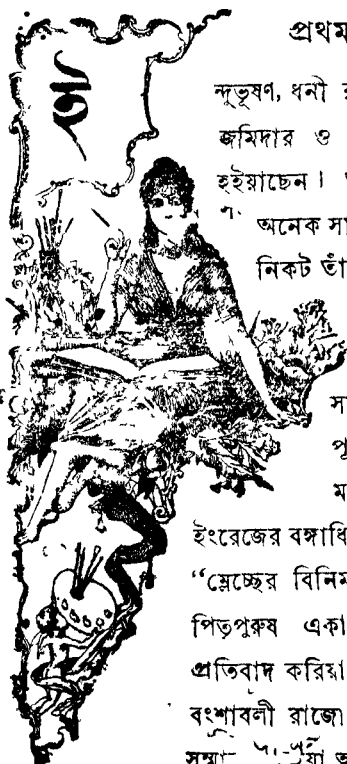 প্রথম
ন্দুভূষণ, ধনী
জমিদার ও
হইয়াছেন।
অনেক সা
নিকট তাঁ
স
পূ
ম
ইংরেজের বঙ্গাধি
“ম্লেচ্ছের বিনিম
পিতৃপুরুষ একা
প্রতিবাদ করিয়া
বংশাবলী রাজো